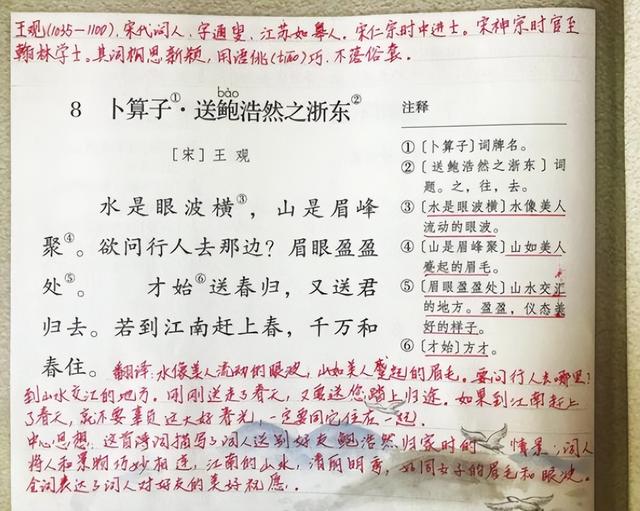 王观(1035—1100),宋代词人,字通叟,江苏如皋人。宋仁宗时中进士。宋神宗时官至
翰林学士。其词构思新颖,用语佻(tiāo)巧,不落俗套。
bào
8 卜算子①·送鲍浩然之浙东②
[宋]王 观
水是眼波横③,山是眉峰
聚④。欲问行人去那边?眉眼盈盈
处⑤。 才始⑥送春归,又送君
归去。若到江南赶上春,千万和
春住。
注释
①〔卜算子〕词牌名。
②〔送鲍浩然之浙东〕词
题。之,往,去。
③〔水是眼波横〕水像美人
流动的眼波。
④〔山是眉峰聚〕山如美人
蹙起的眉毛。
⑤〔眉眼盈盈处〕山水交汇
的地方。盈盈,仪态美
好的样子。
⑥〔才始〕方才。
翻译:水像美人流动的眼波,山如美人蹙起的眉毛。要问行人去哪里?
到山水交汇的地方。刚刚送走了春天,又要送您踏上归途。如果到江南赶上
了春天,就不要辜负这大好春光,一定要同它住在一起。
中心思想:这首诗词描写了词人送别好友鲍浩然归家时的情景;词人
将人和景物巧妙相连,江南的山水,清丽明秀,如同女子的眉毛和眼波。
全词表达了词人对好友的美好祝愿。